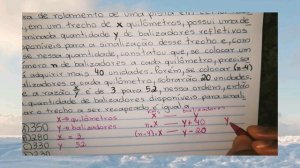 xa de rolamento de uma pista em
, em um trecho de x quilômetros, possui uma de
minada quantidade y de balizadores refletivos
sponíveis para a sinalização desse trecho e, com
se nessa quantidade, constatou que, se colocar um
mero n de balizadores a cada quilômetro, precisa
adquirir mais 40 unidades. Porém, se colocar (n-4)
balizadores a cada quilômetro, sobrarão 20 unidades.
a razão x/y é de 3 para 52, nessa ordem, então
quantidade de balizadores disponíveis para sinali
o trecho a ser recapeado é igual a
)350 x → quilômetros
)280 y → balizadores n.x — y+40
)330 x = 3 (n-4).x — y-20
)230 y 52